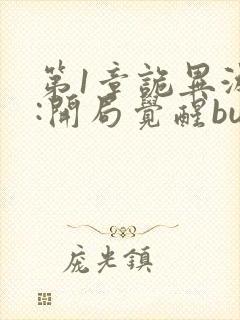 第1章詭異
:開局覺醒bu
龐光鎮